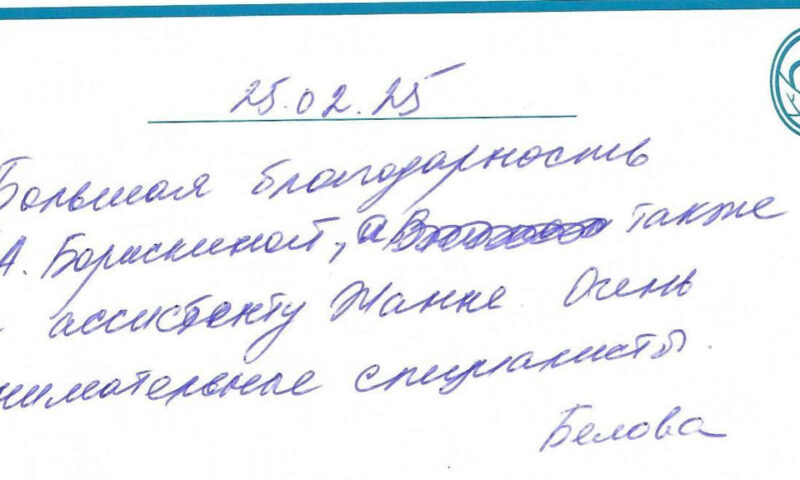 25.02.25
Большая благодарность
А. Бораскиной, а также
ассистенту Жанне. Очень
нимательные специалисты.
Белова